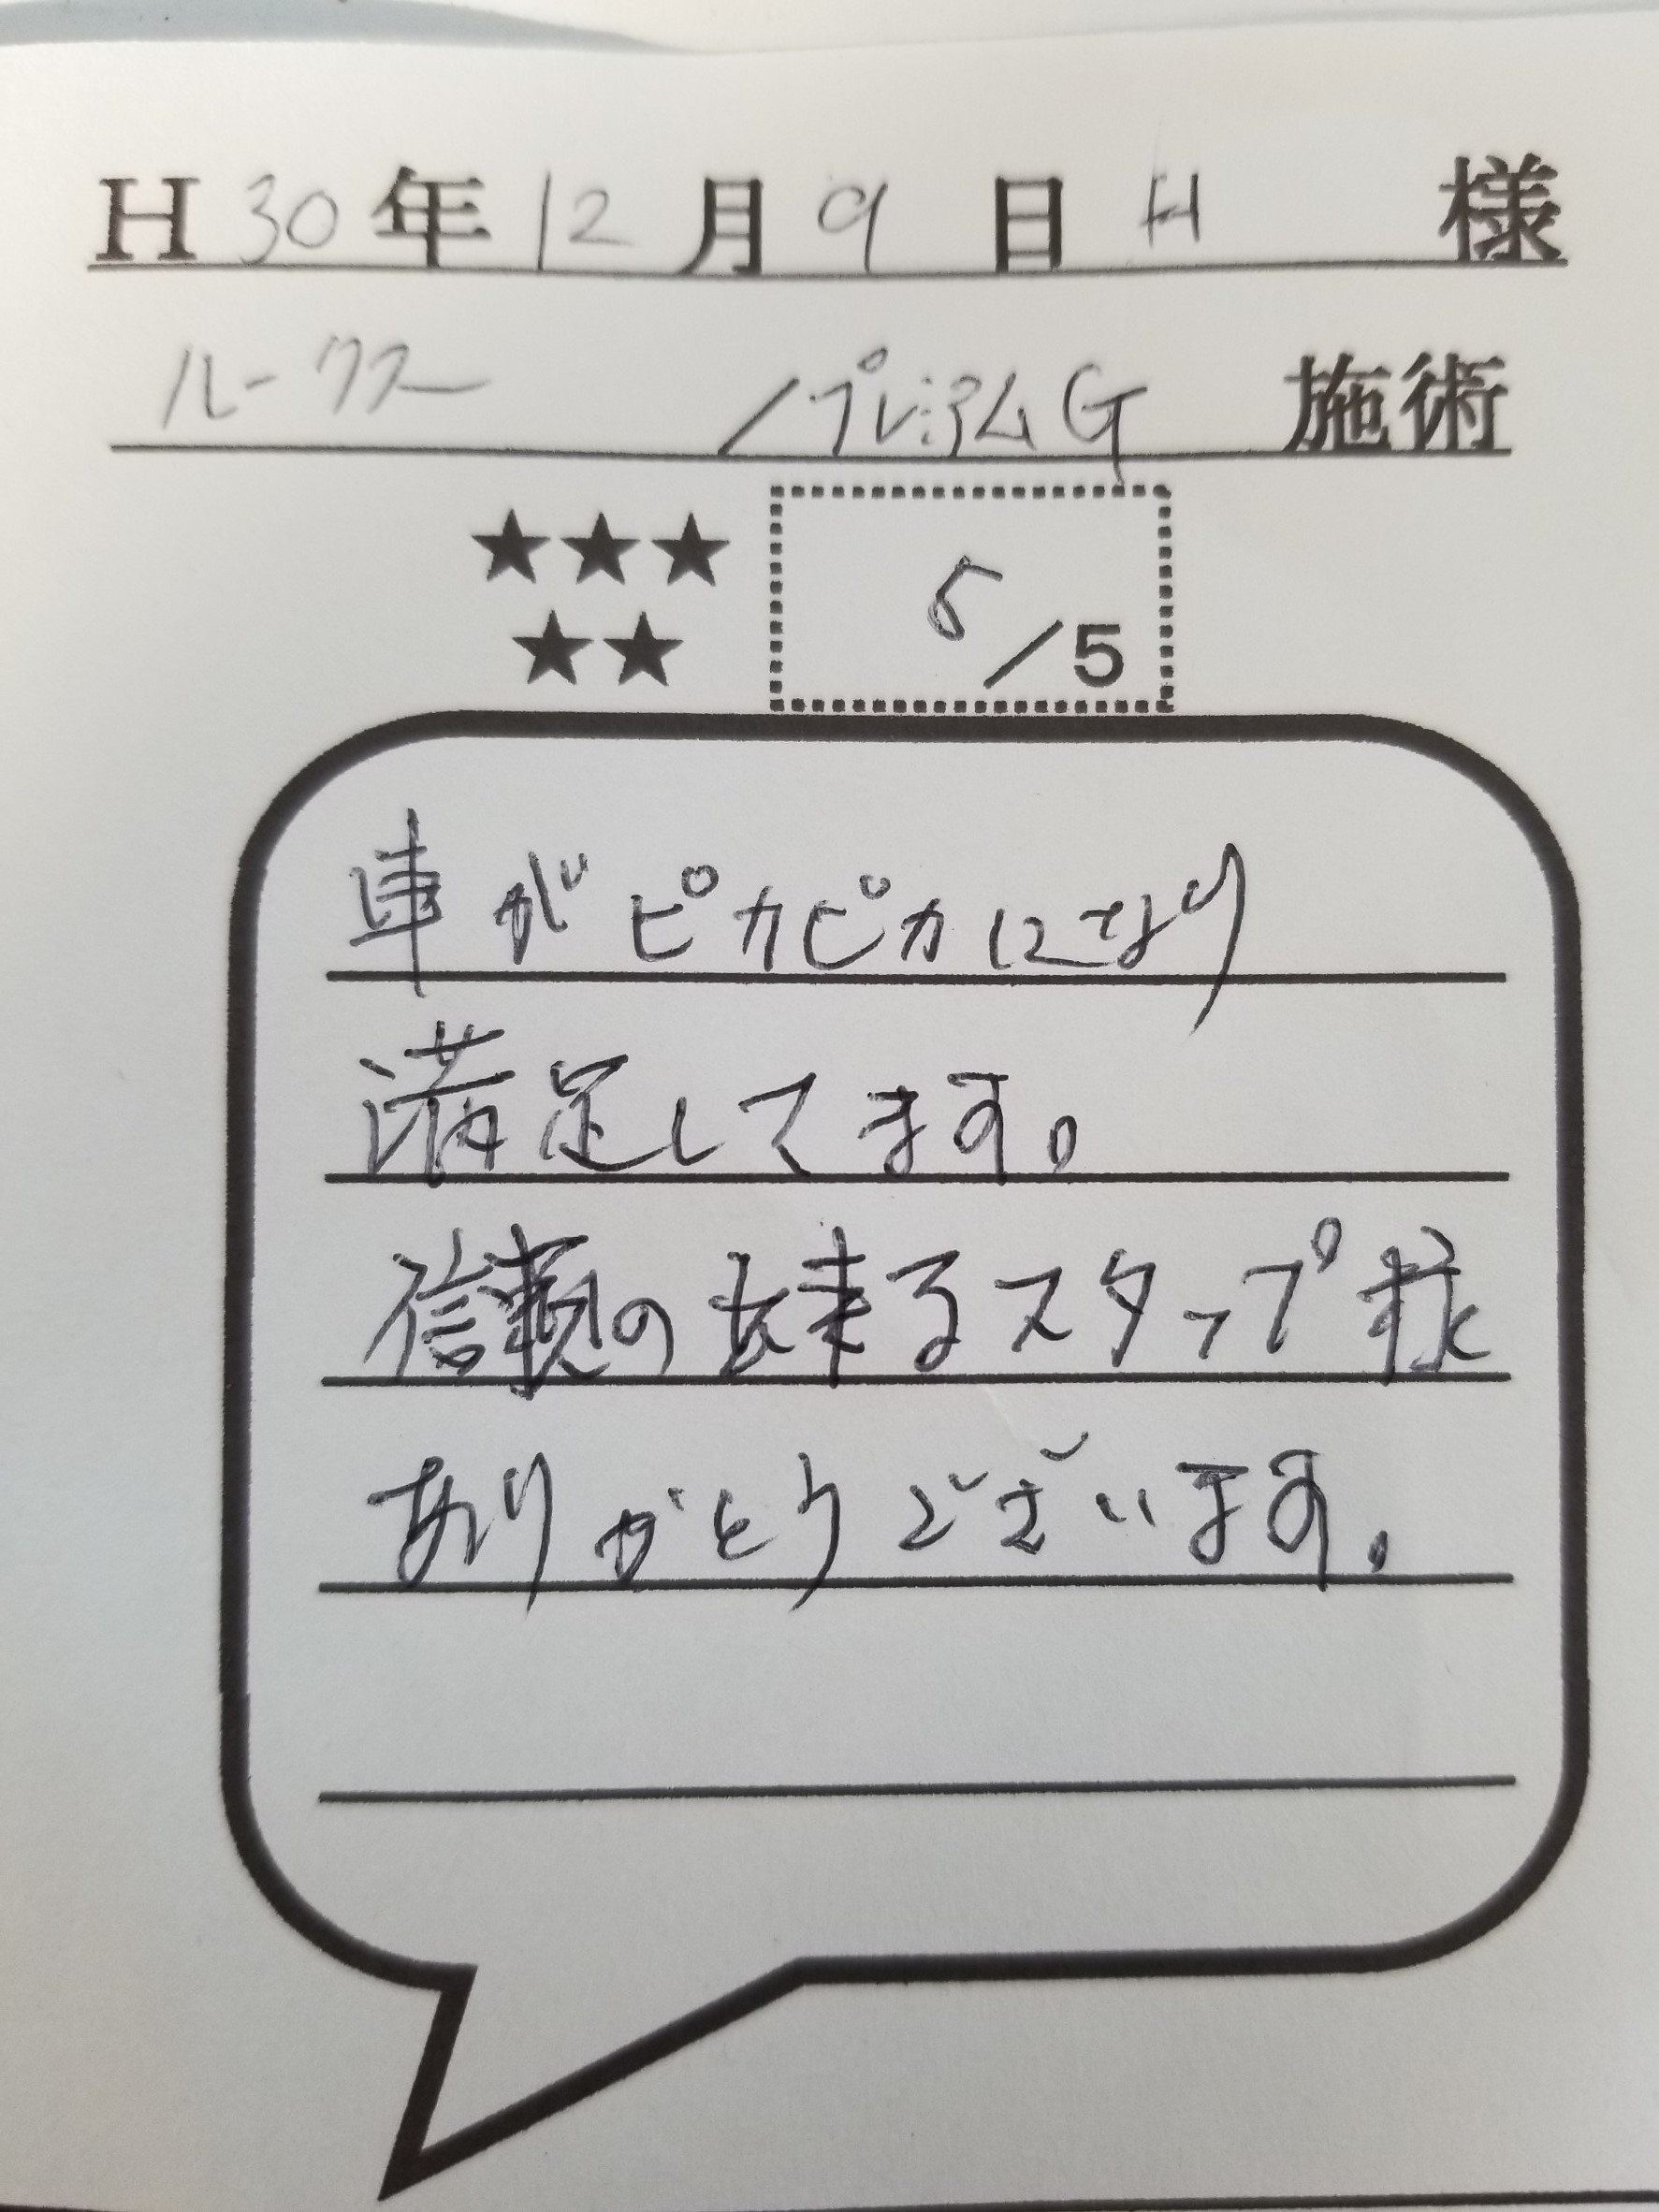 H30年12月9日 H 様
ルークス /プレミアムG 施術
★★★
★★
5/5
車がピカピカになり
満足してます。
信頼の出来るスタップ様
ありがとうございます。